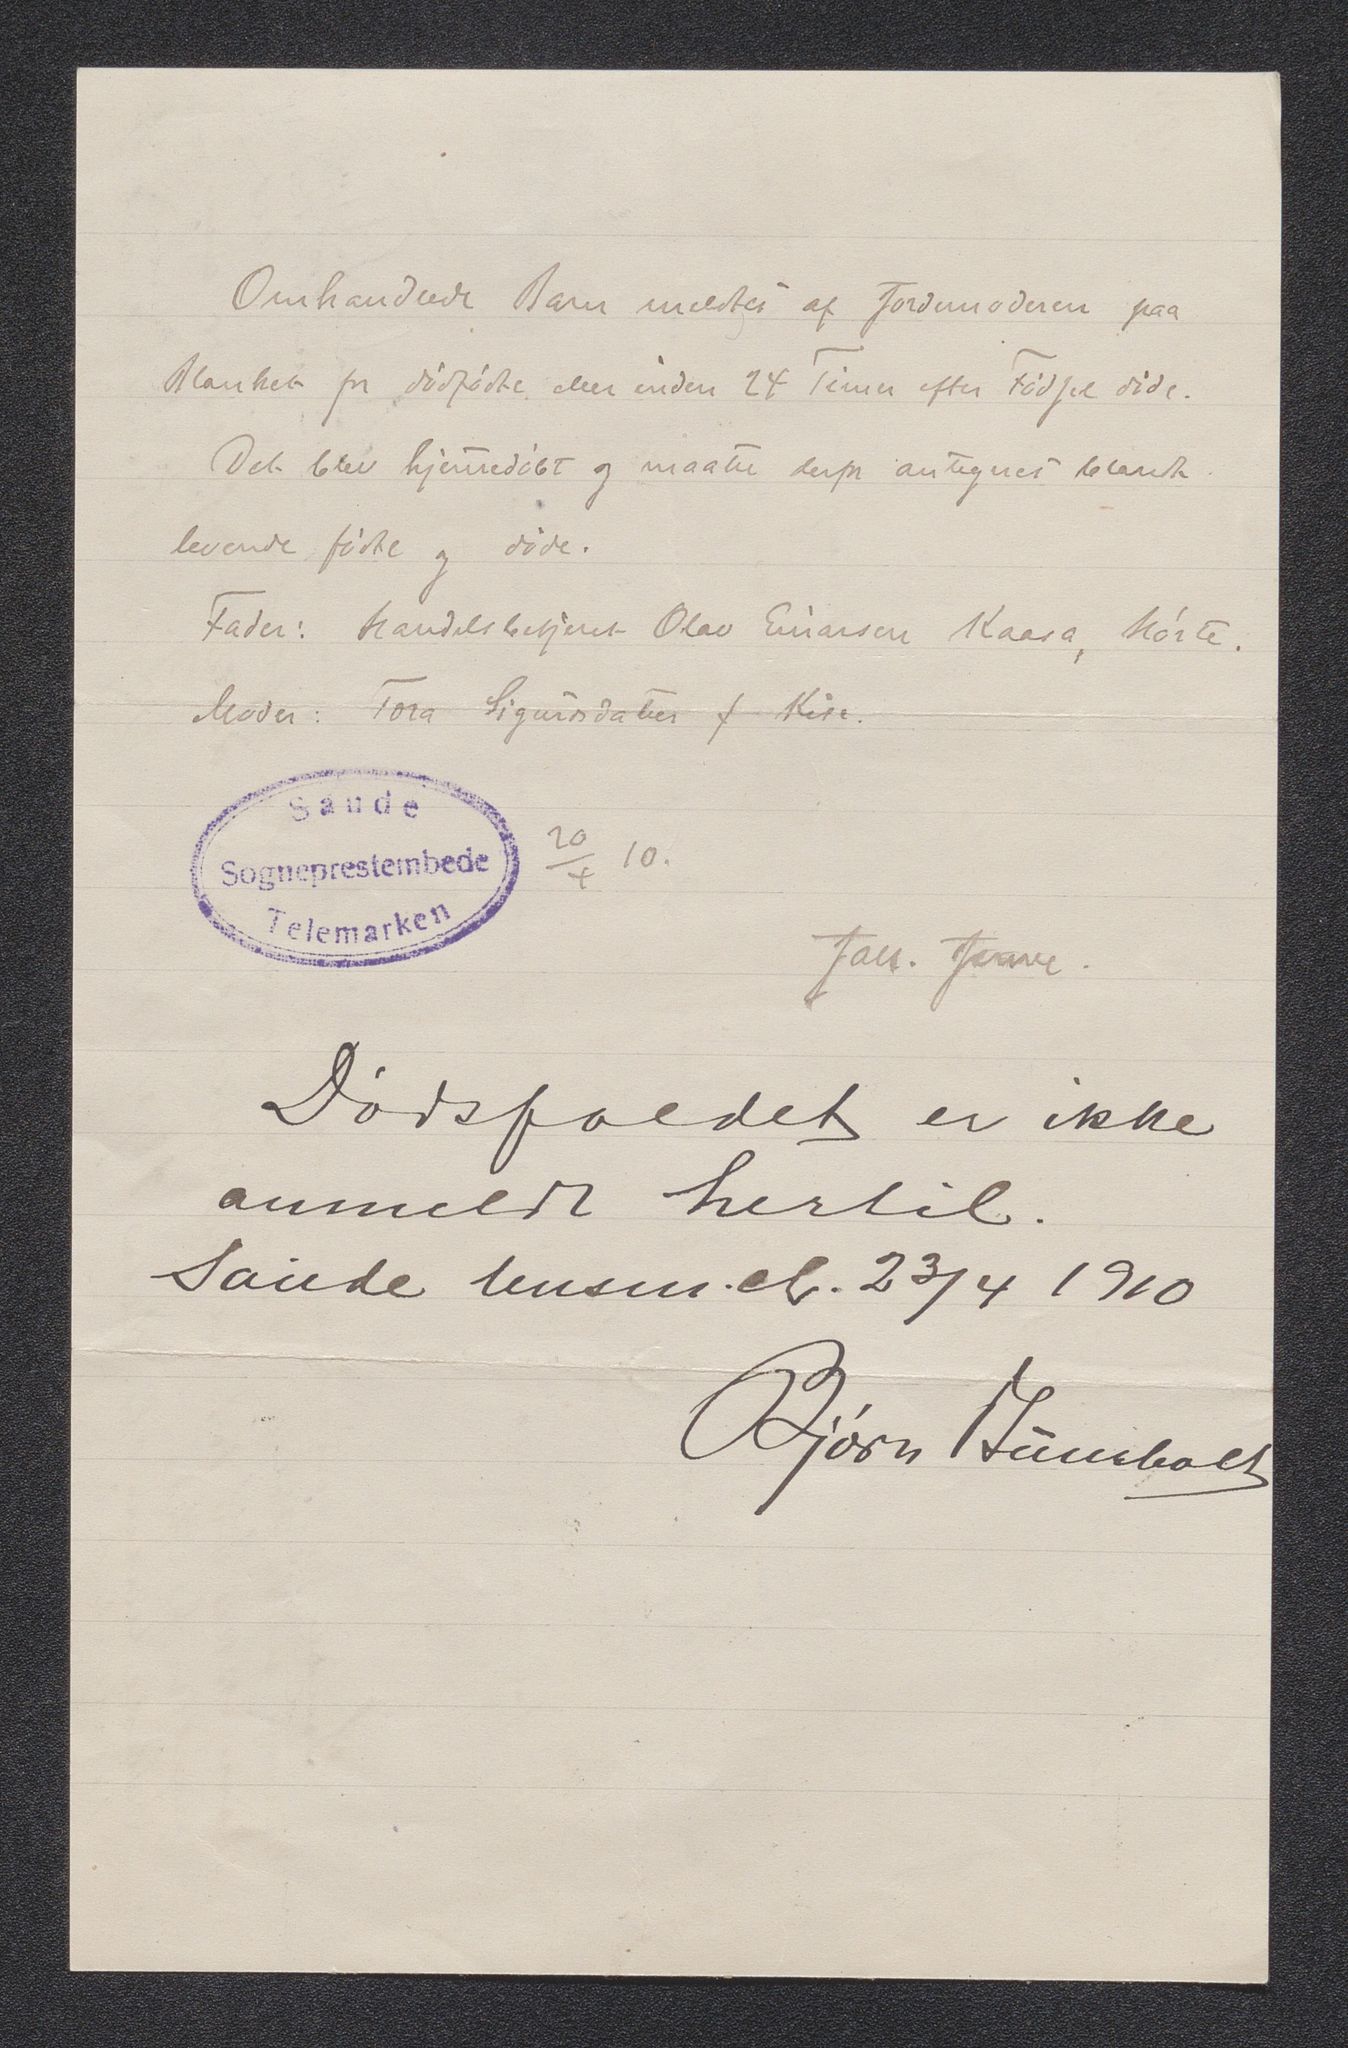 Omhandlede Barn meldtes af Jordemoderen paa
Blanket for dødfødte eller inden 24 Timer efter Fødsel døde.
Det blev hjemmedøbt og maatte derfor antegnes blandt
levende fødte og døde.
Fader: Handelsbetjent Olav Einarsen Kaasa, Hørte.
Moder: Tora Sigurdsdatter f Kise.
Saude
Sogneprestembede
Telemarken
20/4 10.
Dødsfaldet er ikke
anmeldt hertil.
Saude lensm. 23/4 1910
Bjørn